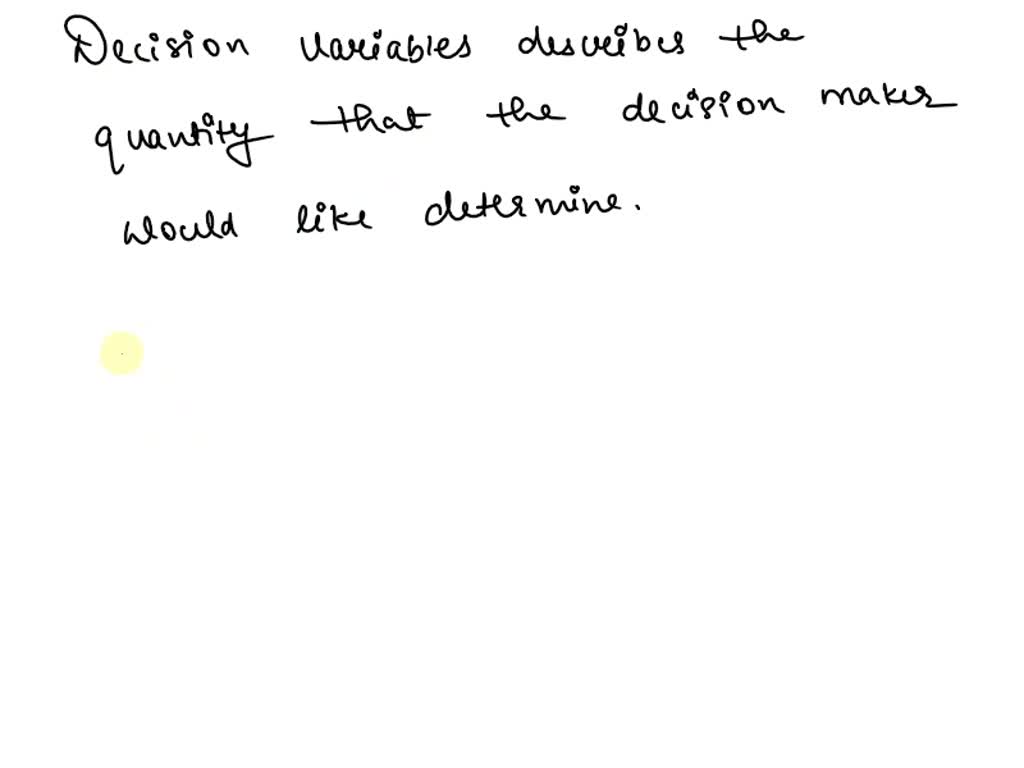 Decision variables describes the
quantity that the decision maker
would like determine.